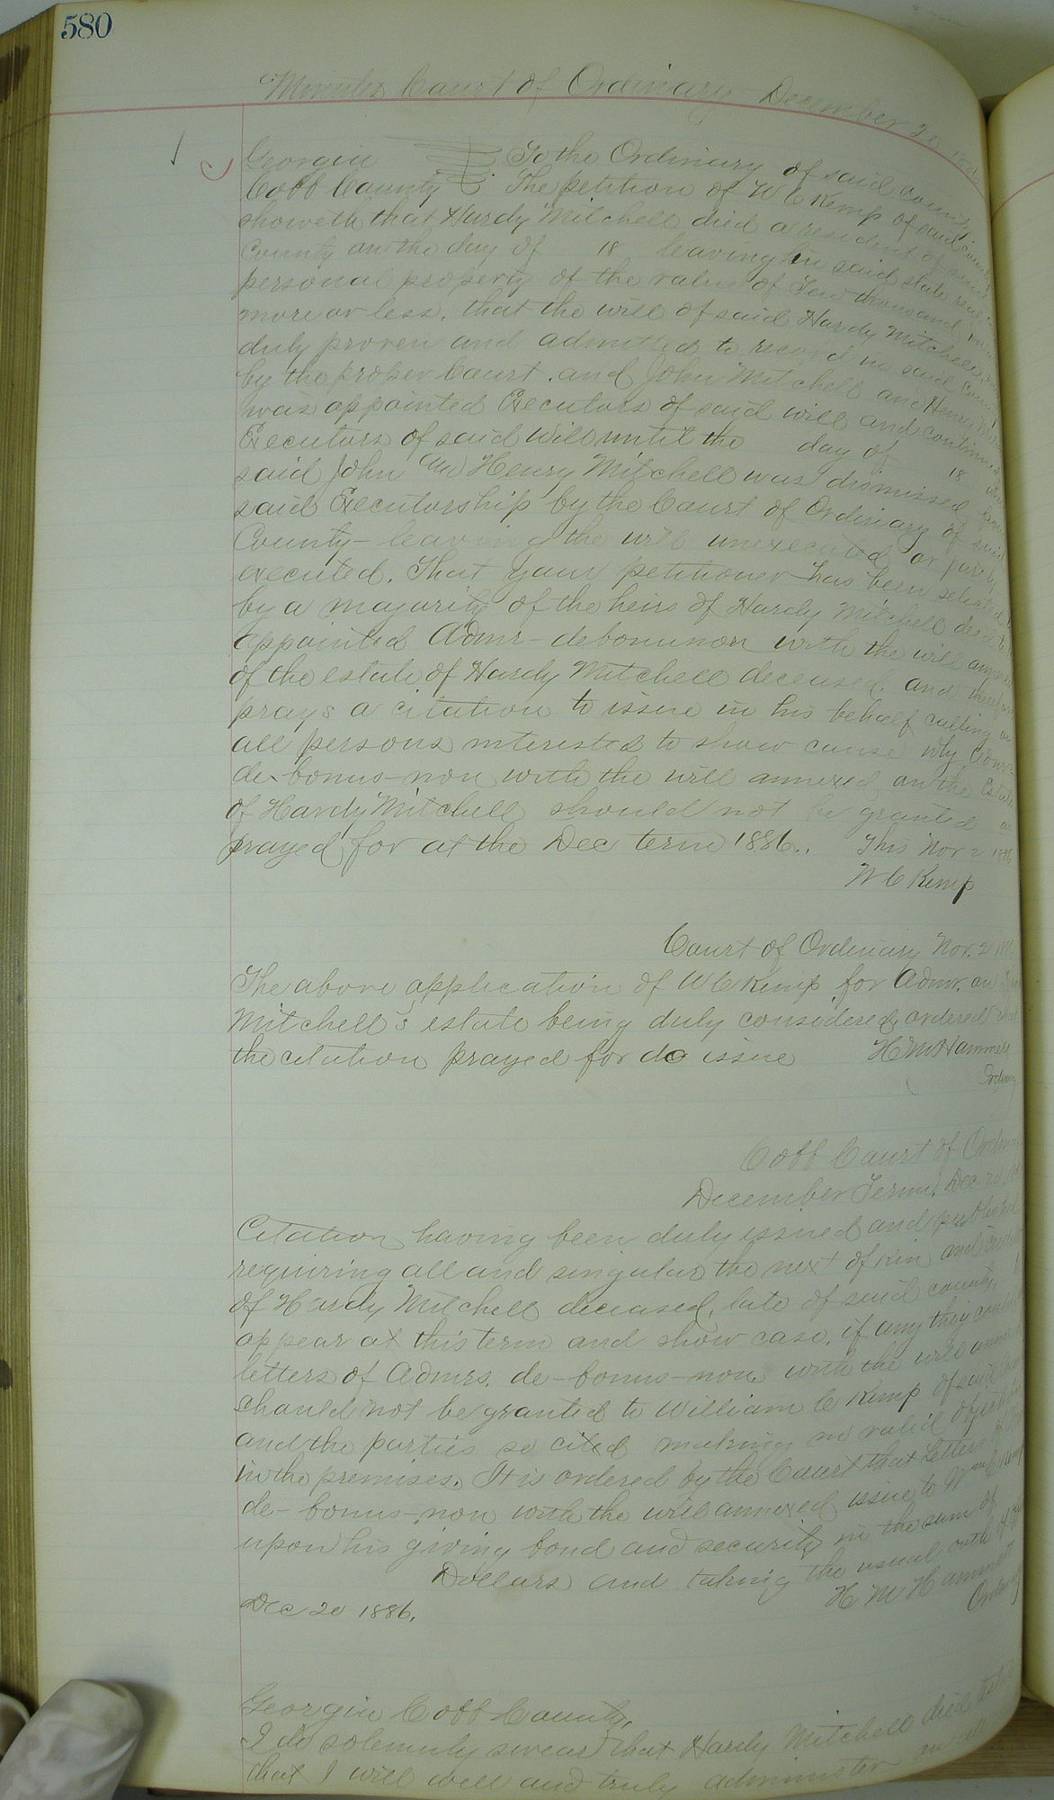 580
Minutes Court of Ordinary December 20
Georgia To the Ordinary of said County
Cobb County The petition of W C Kemp of said County
showeth that Hardy Mitchell died a resident of said
County on the day of 18 leaving in said state real
personal property of the value of Ten thousand
more or less. that the will of said Hardy Mitchell
duly proven and admitted to record in said County
by the proper Court. and John Mitchell and Henry
was appointed Executors of said will and continued
Executors of said will until the day of 18
said John and Henry Mitchell was dismissed from
said Executorship by the Court of Ordinary of said
County- leaving the will unexecuted or partly
executed. That your petitioner has been selected
by a majority of the heirs of Hardy Mitchell
appointed Admr- debonusnon with the will annexed
of the estate of Hardy Mitchell deceased. and therefore
prays a citation to issue in his behalf calling on
all persons interested to show cause why Admr
de-bonus-non with the will annexed on the Estate
of Hardy Mitchell should not be granted as
prayed for at the Dec term 1886.. This Nov 2 1886
W C Kemp
Court of Ordinary Nov. 2
The above application of W C Kemp for Admr. on
Mitchell's estate being duly considered, ordered that
the citation prayed for do issue H M Hammett
Ordinary
Cobb Court of Ordinary
December Term, Dec 20
Citation having been duly issued and published
requiring all and singular the next of kin and
of Hardy Mitchell deceased, late of said county,
appear at this term and show case, if any they could
letters of Admrs. de-bonus-non with the will
should not be granted to William C Kemp of said
and the parties so cited making no valid objection
in the premises. It is ordered by the Court that letters
de-bonus-non with the will annexed issue to Wm C Kemp
upon his giving bond and security in the sum of
Dollars and taking the usual oath of
Dec 20 1886. H M Hammett
Ordinary
Georgia Cobb County,
I do solemnly swear that Hardy Mitchell died
that I will well and truly administer on